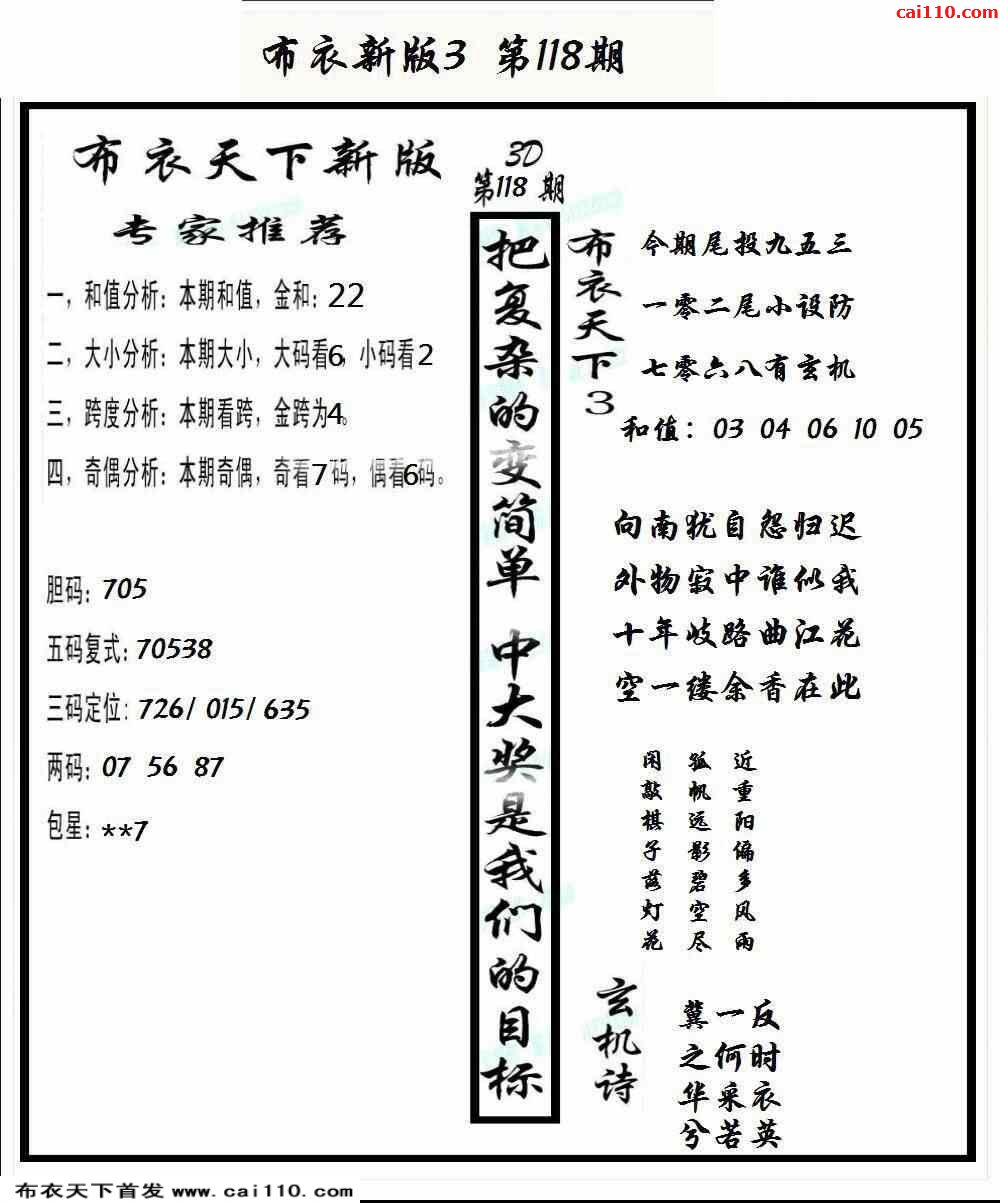 cai110.com
布衣新版3 第118期
布衣天下新版
专家推荐
一，和值分析：本期和值，金和：22
二，大小分析：本期大小，大码看6，小码看2
三，跨度分析：本期看跨，金跨为4。
四，奇偶分析：本期奇偶，奇看7码，偶看6码。
胆码：705
五码复式：70538
三码定位：726/ 015/ 635
两码：07 56 87
包星：**7
3D
第118期
把复杂的变简单 中大奖是我们的目标
布衣天下3
今期尾投九五三
一零二尾小设防
七零六八有玄机
和值：03 04 06 10 05
向南犹自怨归迟
外物寂中谁似我
十年岐路曲江花
空一缕余香在此
近重阳偏多风雨
孤帆远影碧空尽
闲敲棋子落灯花
玄机诗
反时衣英
一何采若
冀之华兮
布衣天下首发 www.cai110.com